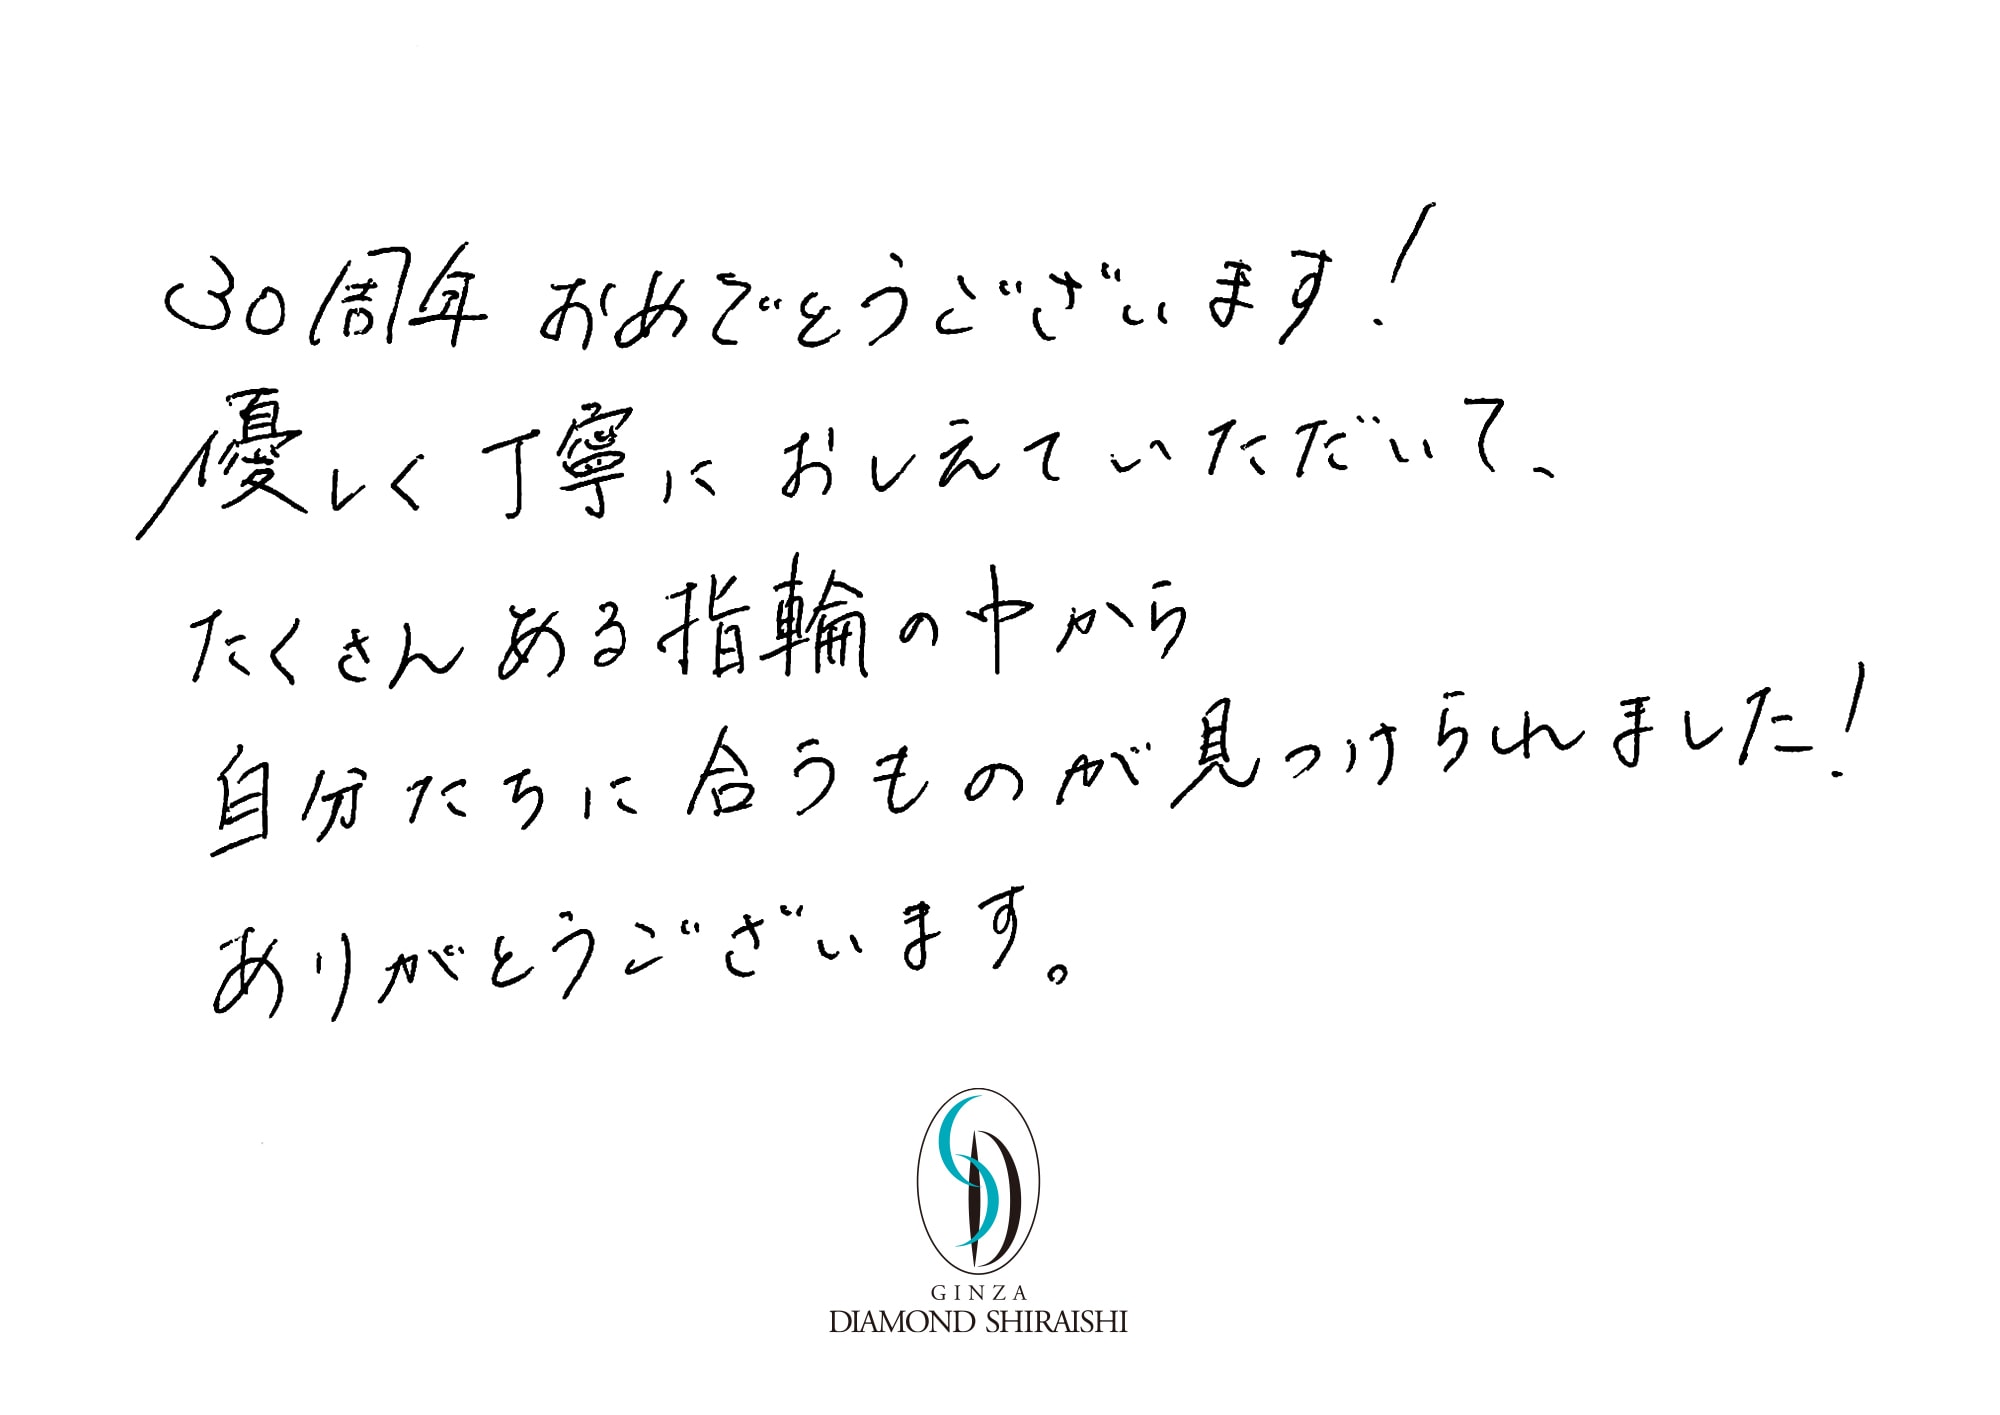 30周年おめでとうございます!
優しく丁寧におしえていただいて、
たくさんある指輪の中から
自分たちに合うものが見つけられました!
ありがとうございます。
GINZA
DIAMOND SHIRAISHI